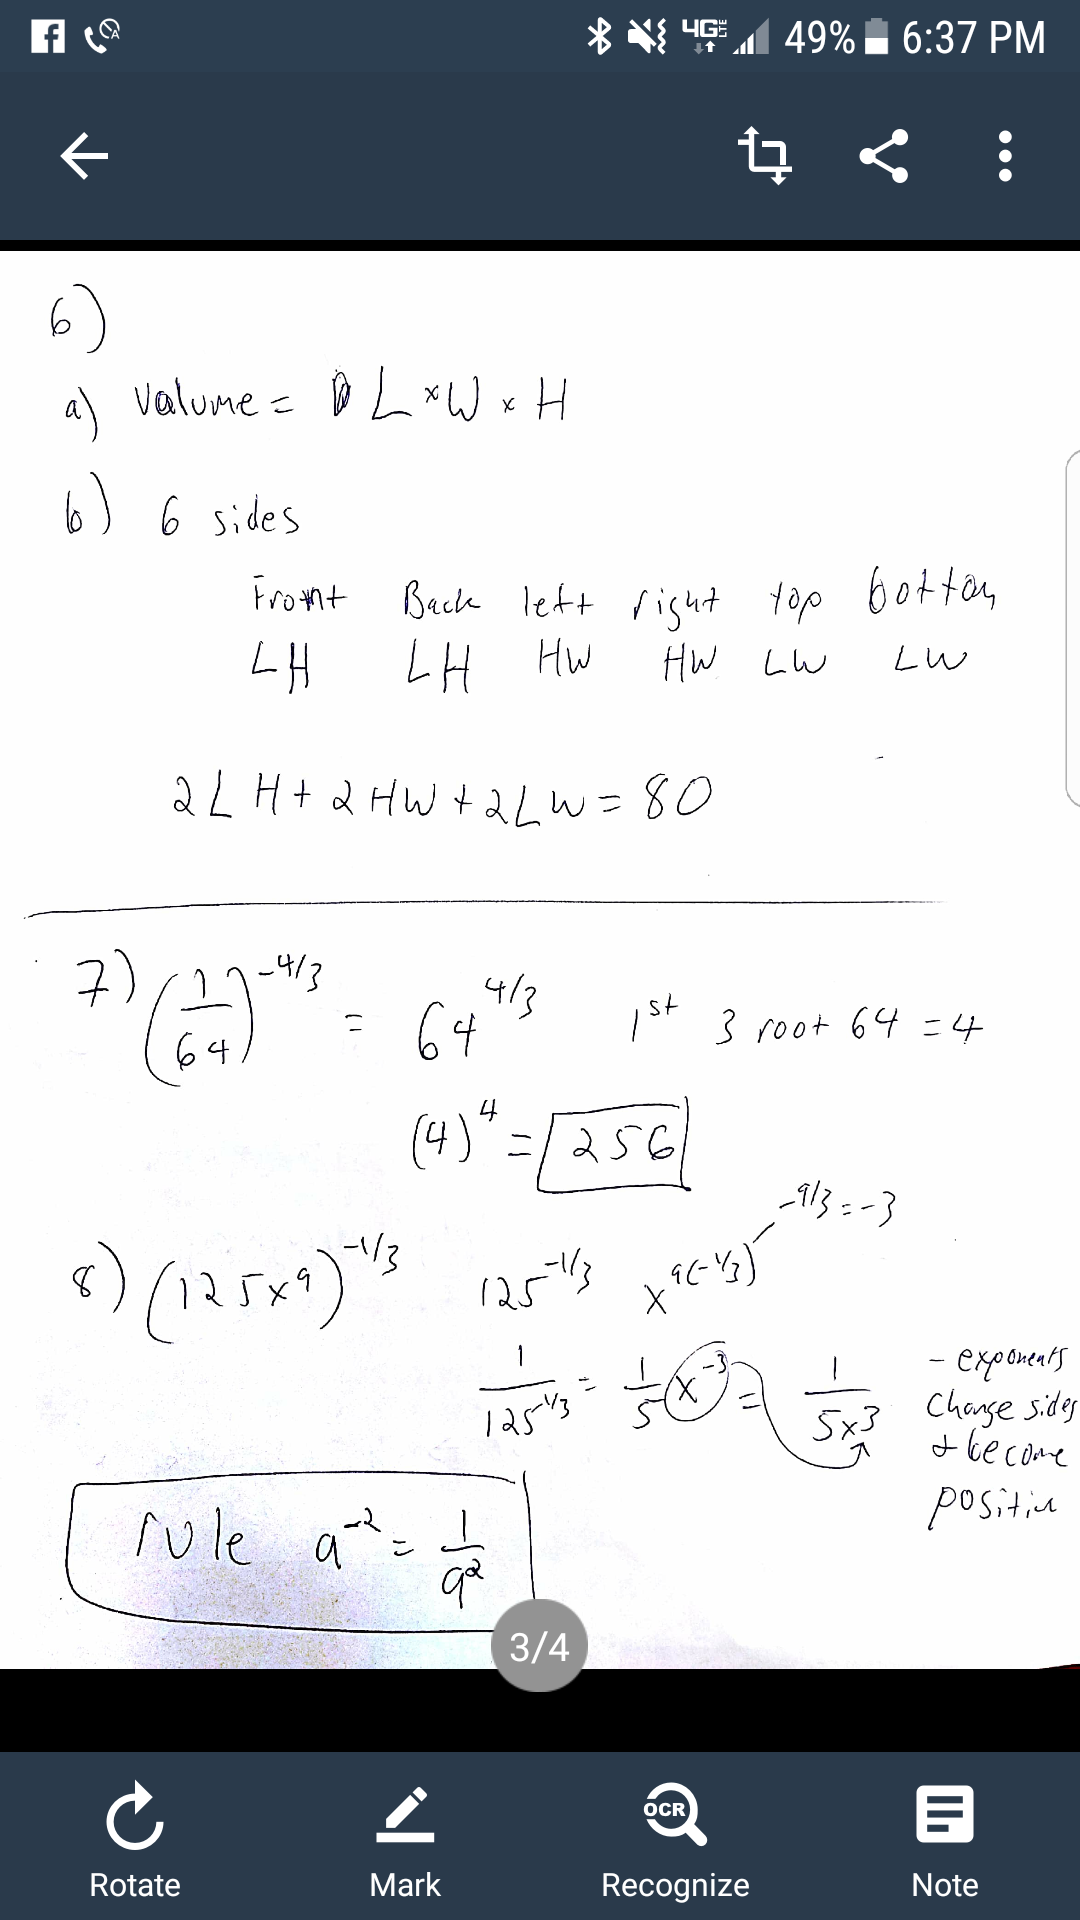 49% 6:37 PM
6)
a) Valume = L × W × H
b) 6 sides
Front Back left right top bottom
LH LH HW HW LW LW
2LH + 2HW + 2LW = 80
7) (1/64)^-4/3 = 64^4/3 1st 3 root 64 = 4
(4)^4 = 256
-9/3 = -3
8) (125x^9)^-1/3 125^-1/3 x^9(-1/3)
1/125^-1/3 = 1/5 x^-3 = 1/5x^3
- exponents
Change sides
+ become
positiv
rule a^-2 = 1/a^2
3/4
Rotate Mark OCR Recognize Note